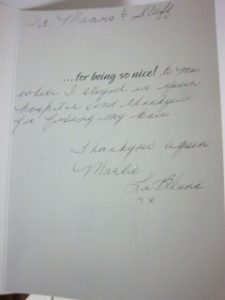 Dr Manns & Staff
...for being so nice! to me
while I stayed in your
hospital and thankyou
for fixing my knee.
Thankyou again
LeBlanc
xx